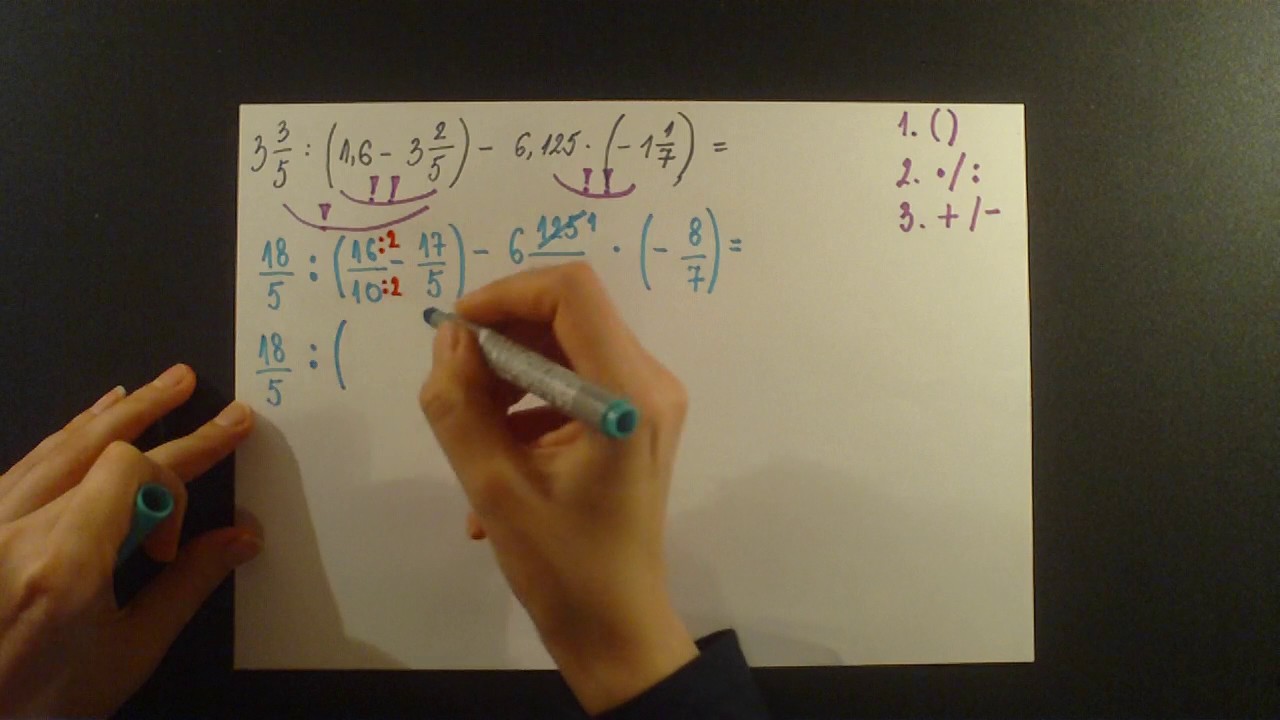 3 3/5 : (1,6 - 3 2/5) - 6,125 · (-1 1/7) =
1. ()
2. • / :
3. + / -
18/5 : (16:2/10:2 - 17/5) - 6 125 1 · (- 8/7) =
18/5 : (